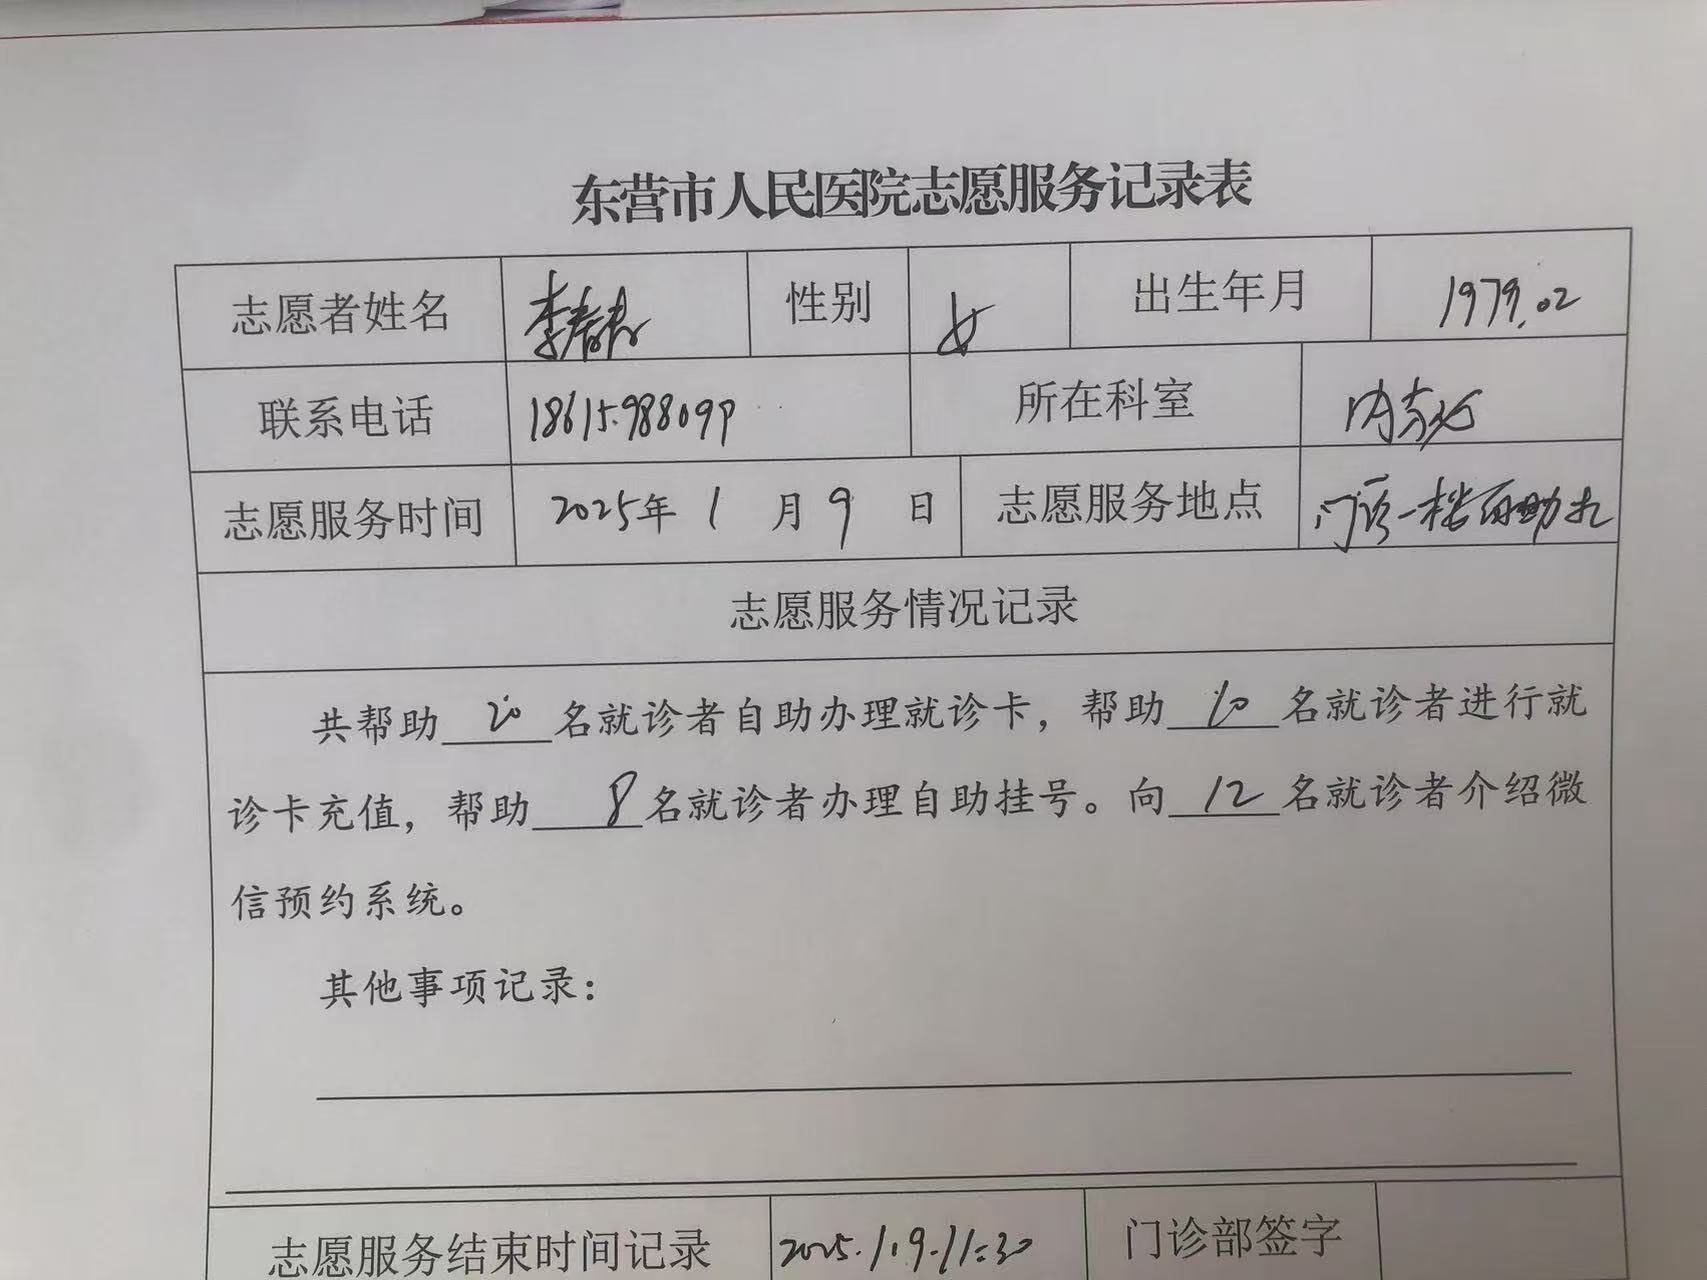 东营市人民医院志愿服务记录表
志愿者姓名 李春春 性别 女 出生年月 1979.02
联系电话 18615988099 所在科室
志愿服务时间 2025年 1 月 9 日 志愿服务地点 门诊一楼自助机
志愿服务情况记录
共帮助 20 名就诊者自助办理就诊卡，帮助 10 名就诊者进行就
诊卡充值，帮助 8 名就诊者办理自助挂号。向 12 名就诊者介绍微
信预约系统。
其他事项记录：
志愿服务结束时间记录 2025.1.9.11:30 门诊部签字